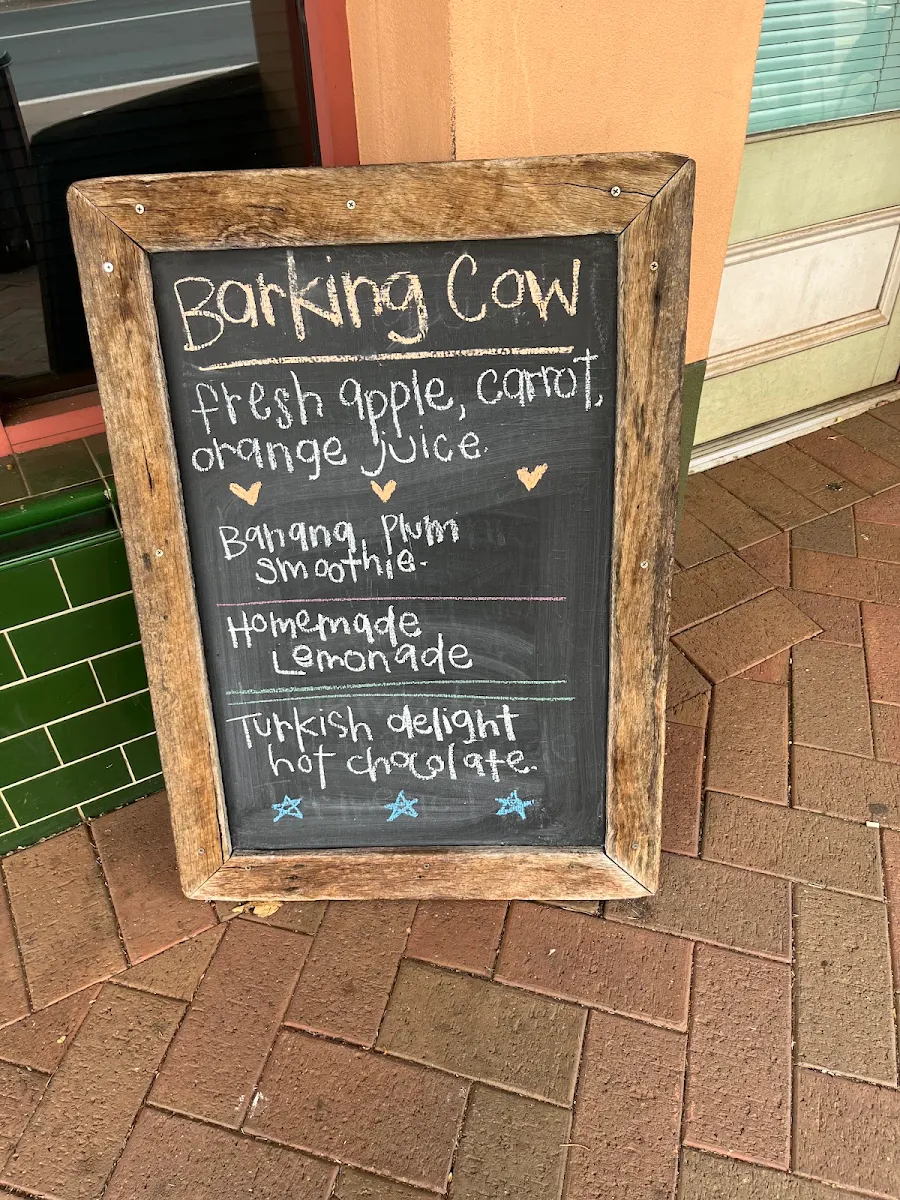 Barking Cow
fresh apple, carrot,
orange juice.
Banana Plum
smoothie.
Homemade
Lemonade
Turkish delight
hot chocolate.